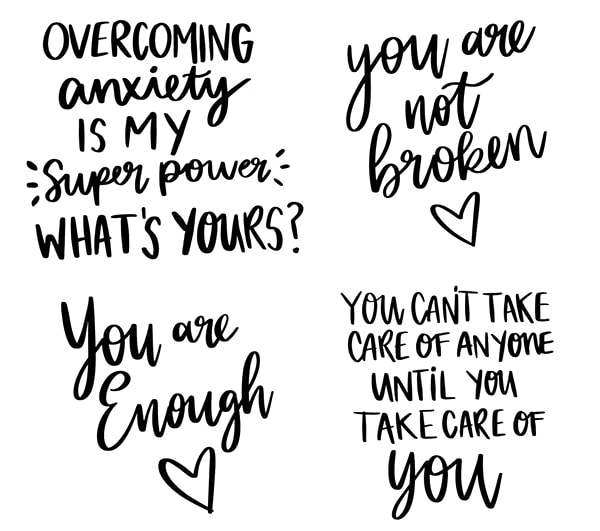 OVERCOMING
anxiety
IS MY
Super power
WHAT'S YOURS?
you are
not
broken
You are
Enough
YOU CAN'T TAKE
CARE OF ANYONE
UNTIL YOU
TAKE CARE OF
YOU